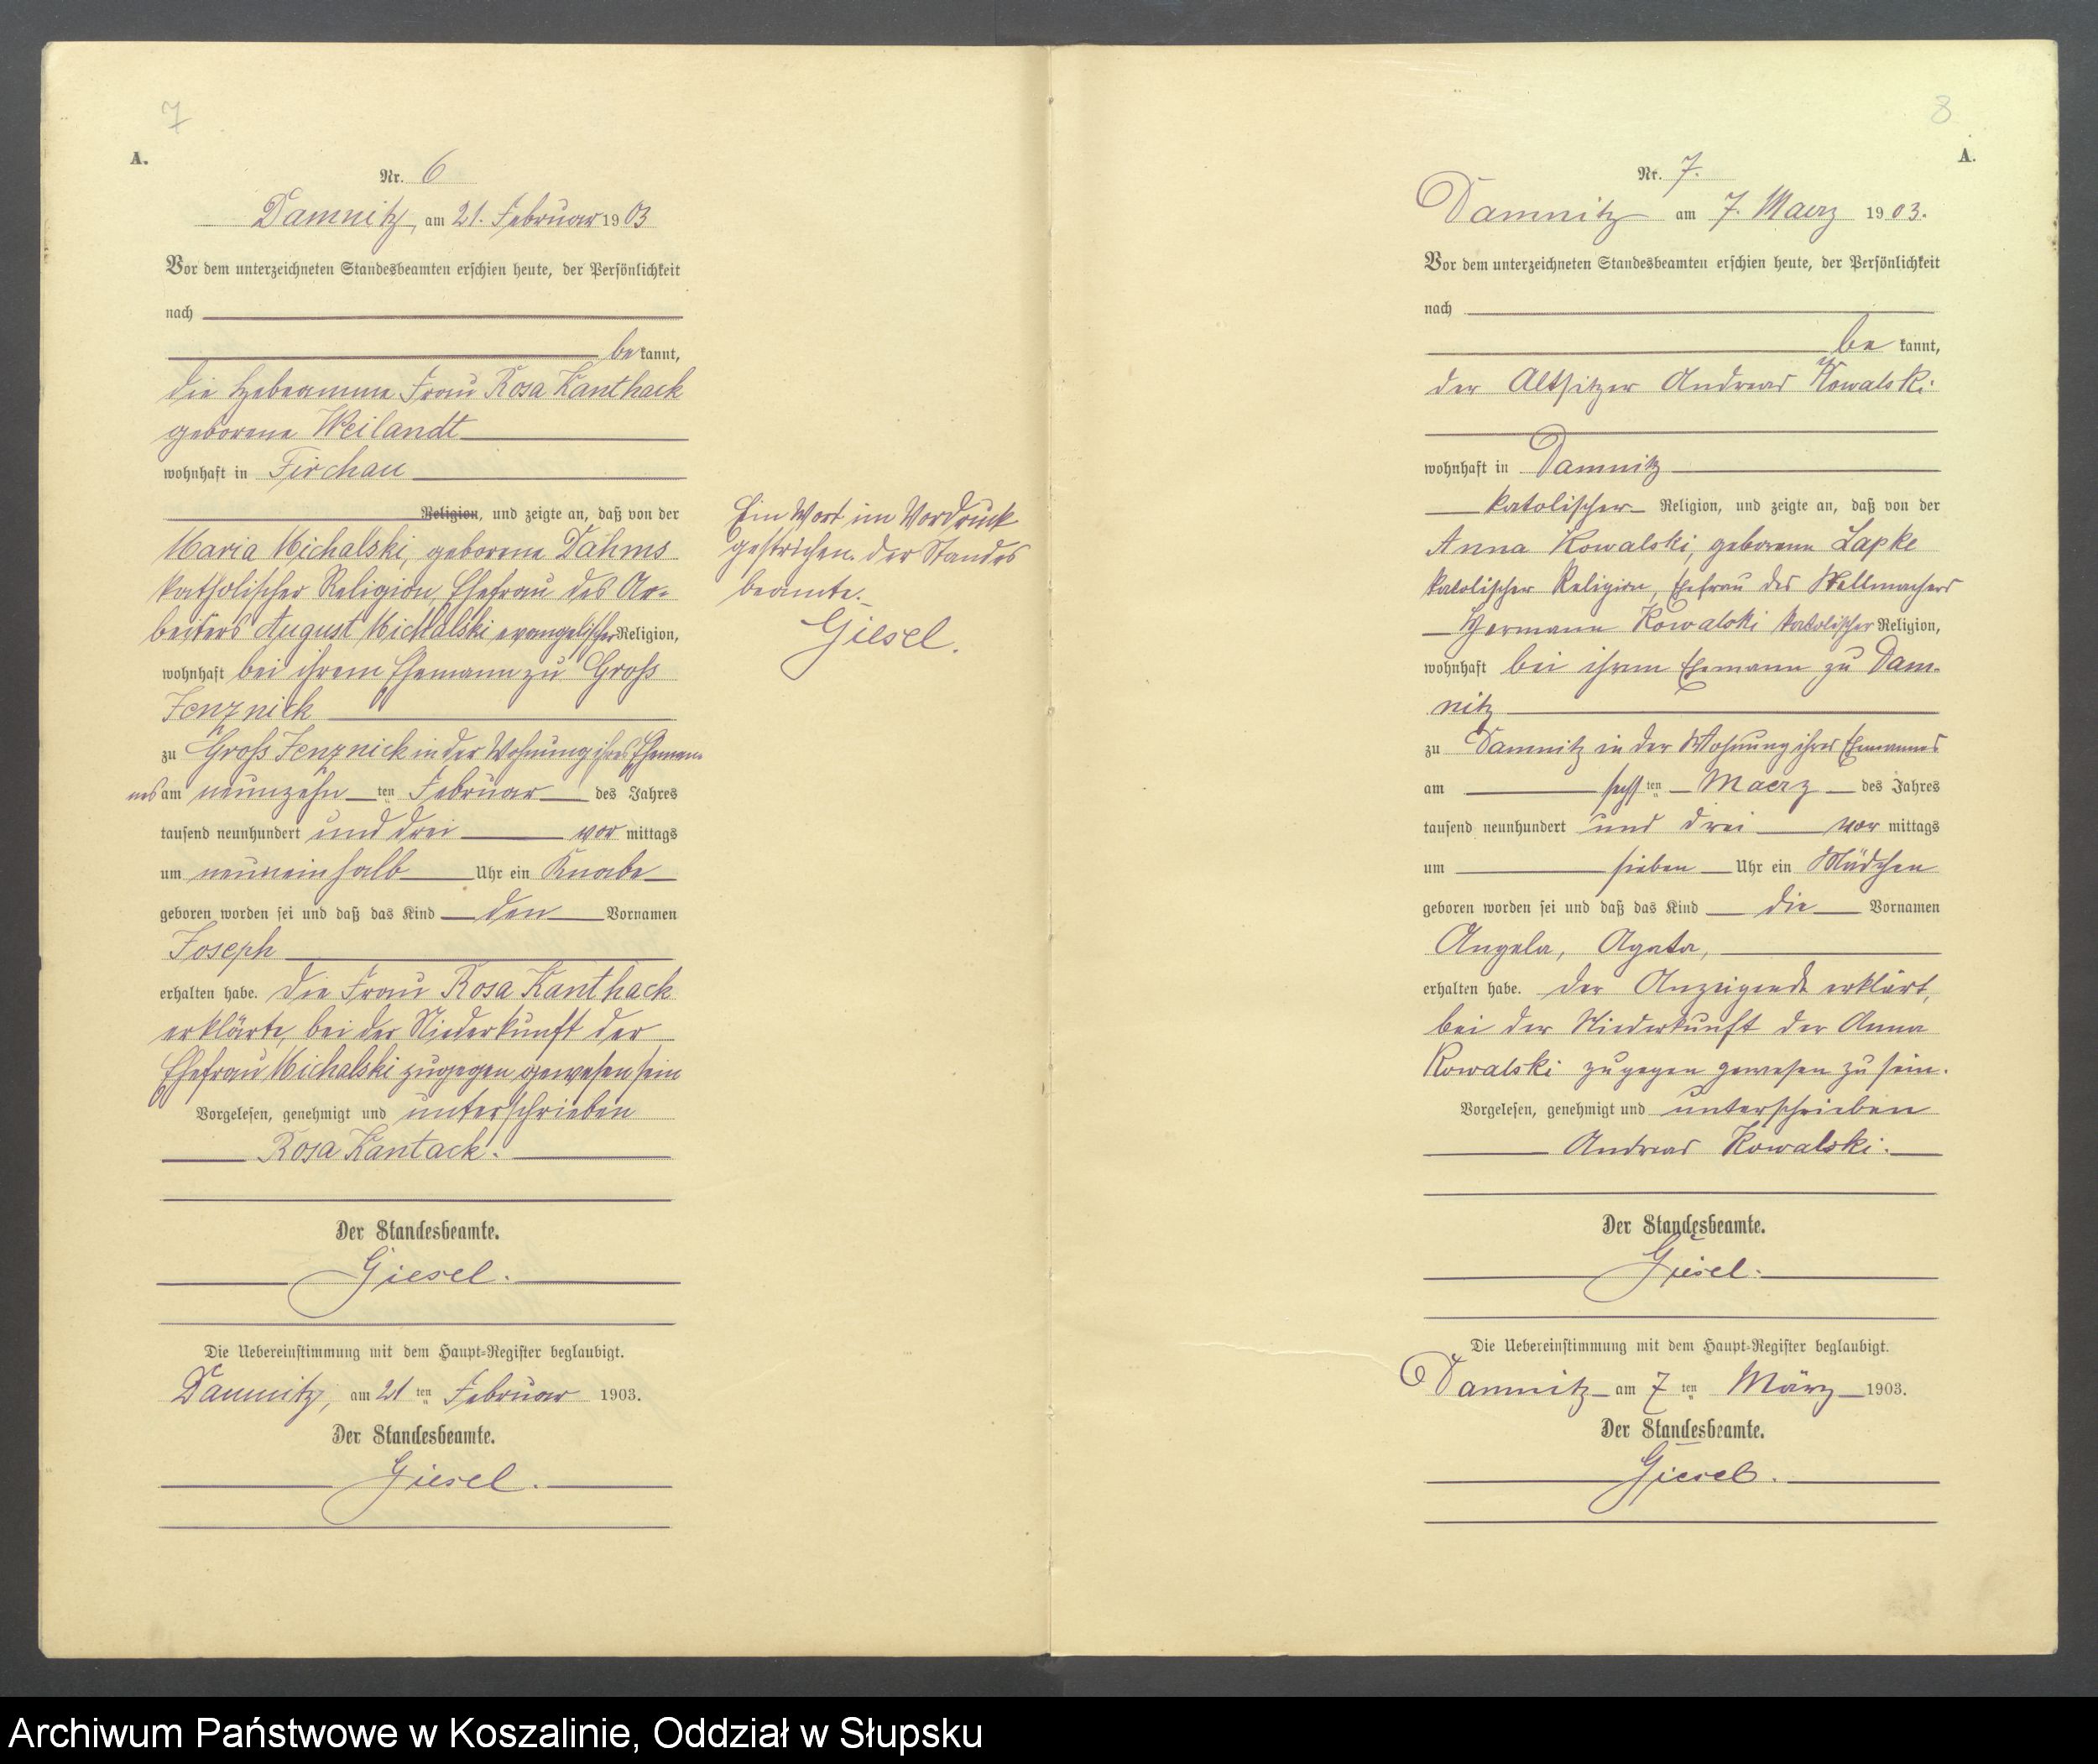 7
A.
Nr. 6
Damnitz, am 21. Februar 1903
Vor dem unterzeichneten Standesbeamten erschien heute, der Persönlichkeit
nach
be kannt,
die Hebeamme Frau Rosa Kanthack
geborene Weilandt
wohnhaft in Firchau
Religion, und zeigte an, daß von der
Maria Michalski, geborene Dahms
katholischer Religion, Ehefrau des Ar-
beiters August Michalski evangelischer Religion,
wohnhaft bei ihrem Ehemann zu Groß
Jenznick
zu Groß Jenznick in der Wohnung ihres Eheman
nes am neunzehn ten Februar des Jahres
tausend neunhundert und drei vor mittags
um neuneinhalb Uhr ein Knabe
geboren worden sei und daß das Kind den Vornamen
Joseph
erhalten habe. Die Frau Rosa Kanthack
erklärte, bei der Niederkunft der
Ehefrau Michalski zugegen gewesen sein
Vorgelesen, genehmigt und unterschrieben
Rosa Kantack.
Der Standesbeamte.
Giesel.
Die Uebereinstimmung mit dem Haupt-Register beglaubigt.
Damnitz, am 21 ten Februar 1903.
Der Standesbeamte.
Giesel.
Ein Wort im Vordruck
gestrichen. Der Standes
beamte.
Giesel.
8
A.
Nr. 7.
Damnitz am 7. Maerz 1903.
Vor dem unterzeichneten Standesbeamten erschien heute, der Persönlichkeit
nach
be kannt,
der Altsitzer Andreas Kowalski
wohnhaft in Damnitz
katolischer Religion, und zeigte an, daß von der
Anna Kowalski, geborenn Lapke
katolischer Religion, Ehefrau des Stellmachers
Hermann Kowalski katolischer Religion,
wohnhaft bei ihrem Ehemann zu Dam-
nitz
zu Damnitz in der Wohnung ihres Ehemannes
am sechs ten Maerz des Jahres
tausend neunhundert und drei vor mittags
um sieben Uhr ein Mädchen
geboren worden sei und daß das Kind die Vornamen
Angela, Agata,
erhalten habe. Der Anzeigende erklärt,
bei der Niederkunft der Anna
Kowalski zugegen gewesen zu sein.
Vorgelesen, genehmigt und unterschrieben
Andreas Kowalski.
Der Standesbeamte.
Giesel.
Die Uebereinstimmung mit dem Haupt-Register beglaubigt.
Damnitz am 7 ten März 1903.
Der Standesbeamte.
Giesel.
Archiwum Państwowe w Koszalinie, Oddział w Słupsku